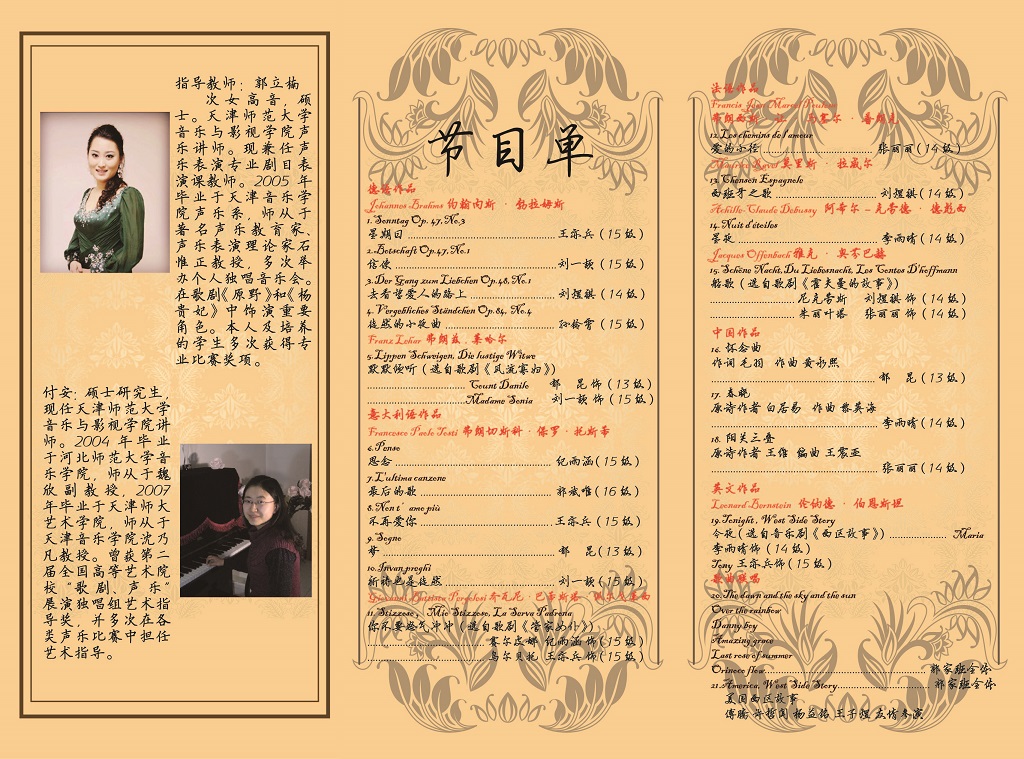 指导教师：郭立楠
次女高音，硕
士。天津师范大学
音乐与影视学院声
乐讲师。现兼任声
乐表演专业剧目表
演课教师。2005 年
毕业于天津音乐学
院声乐系，师从于
著名声乐教育家、
声乐表演理论家石
惟正教授，多次举
办个人独唱音乐会。
在歌剧《原野》和《杨
贵妃》中饰演重要
角色。本人及培养
的学生多次获得专
业比赛奖项。
付安：硕士研究生，
现任天津师范大学
音乐与影视学院讲
师。2004 年毕业
于河北师范大学音
乐学院，师从于魏
欣副教授，2007
年毕业于天津师大
艺术学院，师从于
天津音乐学院沈乃
凡教授。曾获第二
届全国高等艺术院
校“歌剧、声乐”
展演独唱组艺术指
导奖，并多次在各
类声乐比赛中担任
艺术指导。
节目单
德语作品
Johannes Brahms 约翰内斯 · 勃拉姆斯
1. Sonntag Op. 47, No.3
星期日 ........ 王亦兵（15 级）
2. Botschaft Op.47, No.1
信使 ........ 刘一颖（15 级）
3. Der Gang zum Liebchen Op.48, No.1
去看望爱人的路上 ........ 刘煜祺（14 级）
4. Vergebliches Ständchen Op.84, No.4
徒然的小夜曲 ........ 孙裕霄（15 级）
Franz Lehar 弗朗兹 . 莱哈尔
5. Lippen Schweigen, Die lustige Witwe
默默倾听（选自歌剧《风流寡妇》）
........ Count Danilo 郁 昆 饰（13 级）
........ Madame Sonia 刘一颖 饰（15 级）
意大利语作品
Francesco Paolo Tosti 弗朗切斯科 · 保罗 · 托斯蒂
6. Penso
思念 ........ 纪雨涵（15 级）
7. L'ultima canzone
最后的歌 ........ 郭斌唯（16 级）
8. Non t' amo più
不再爱你 ........ 王亦兵（15 级）
9. Sogno
梦 ........ 郁 昆（13 级）
10. Invan preghi
祈祷也是徒然 ........ 刘一颖（15 级）
Giovanni Battista Pergolesi 乔瓦尼 · 巴蒂斯塔 · 佩尔戈莱西
11. Stizzoso, Mio Stizzoso, La Serva Padrona
你不要怒气冲冲（选自歌剧《管家女仆》）
........ 塞尔皮娜 纪雨涵 饰（15 级）
........ 乌尔贝托 王亦兵 饰（15 级）
法语作品
Francis Jean Marcel Poulenc
弗朗西斯 · 让 · 马塞尔 · 普朗克
12. Les chemins de l'amour
爱的小径 ........ 张丽丽（14 级）
Maurice Ravel 莫里斯 · 拉威尔
13. Chanson Espagnole
西班牙之歌 ........ 刘煜祺（14 级）
Achille-Claude Debussy 阿希尔 - 克劳德 · 德彪西
14. Nuit d'étoiles
星夜 ........ 李雨晴（14 级）
Jacques Offenbach 雅克 · 奥芬巴赫
15. Schöne Nacht, Du Liebesnacht, Les Contes D'hoffmann
船歌（选自歌剧《霍夫曼的故事》）
........ 尼克劳斯 刘煜祺 饰（14 级）
........ 朱丽叶塔 张丽丽 饰（14 级）
中国作品
16. 怀念曲
作词 毛羽 作曲 黄永熙
........ 郁 昆（13 级）
17. 春晓
原诗作者 白居易 作曲 黎英海
........ 李雨晴（14 级）
18. 阳关三叠
原诗作者 王维 编曲 王震亚
........ 张丽丽（14 级）
英文作品
Leonard Bernstein 伦纳德 · 伯恩斯坦
19. Tonight, West Side Story
今夜（选自音乐剧《西区故事》） ........ Maria
李雨晴饰（14 级）
Tony 王亦兵饰（15 级）
歌曲联唱
20. The dawn and the sky and the sun
Over the rainbow
Danny boy
Amazing grace
Last rose of summer
Orinoco flow ........ 郭家班全体
21. America, West Side Story ........ 郭家班全体
美国西区故事
傅腾 许哲闻 杨益铭 王子煜 友情参演